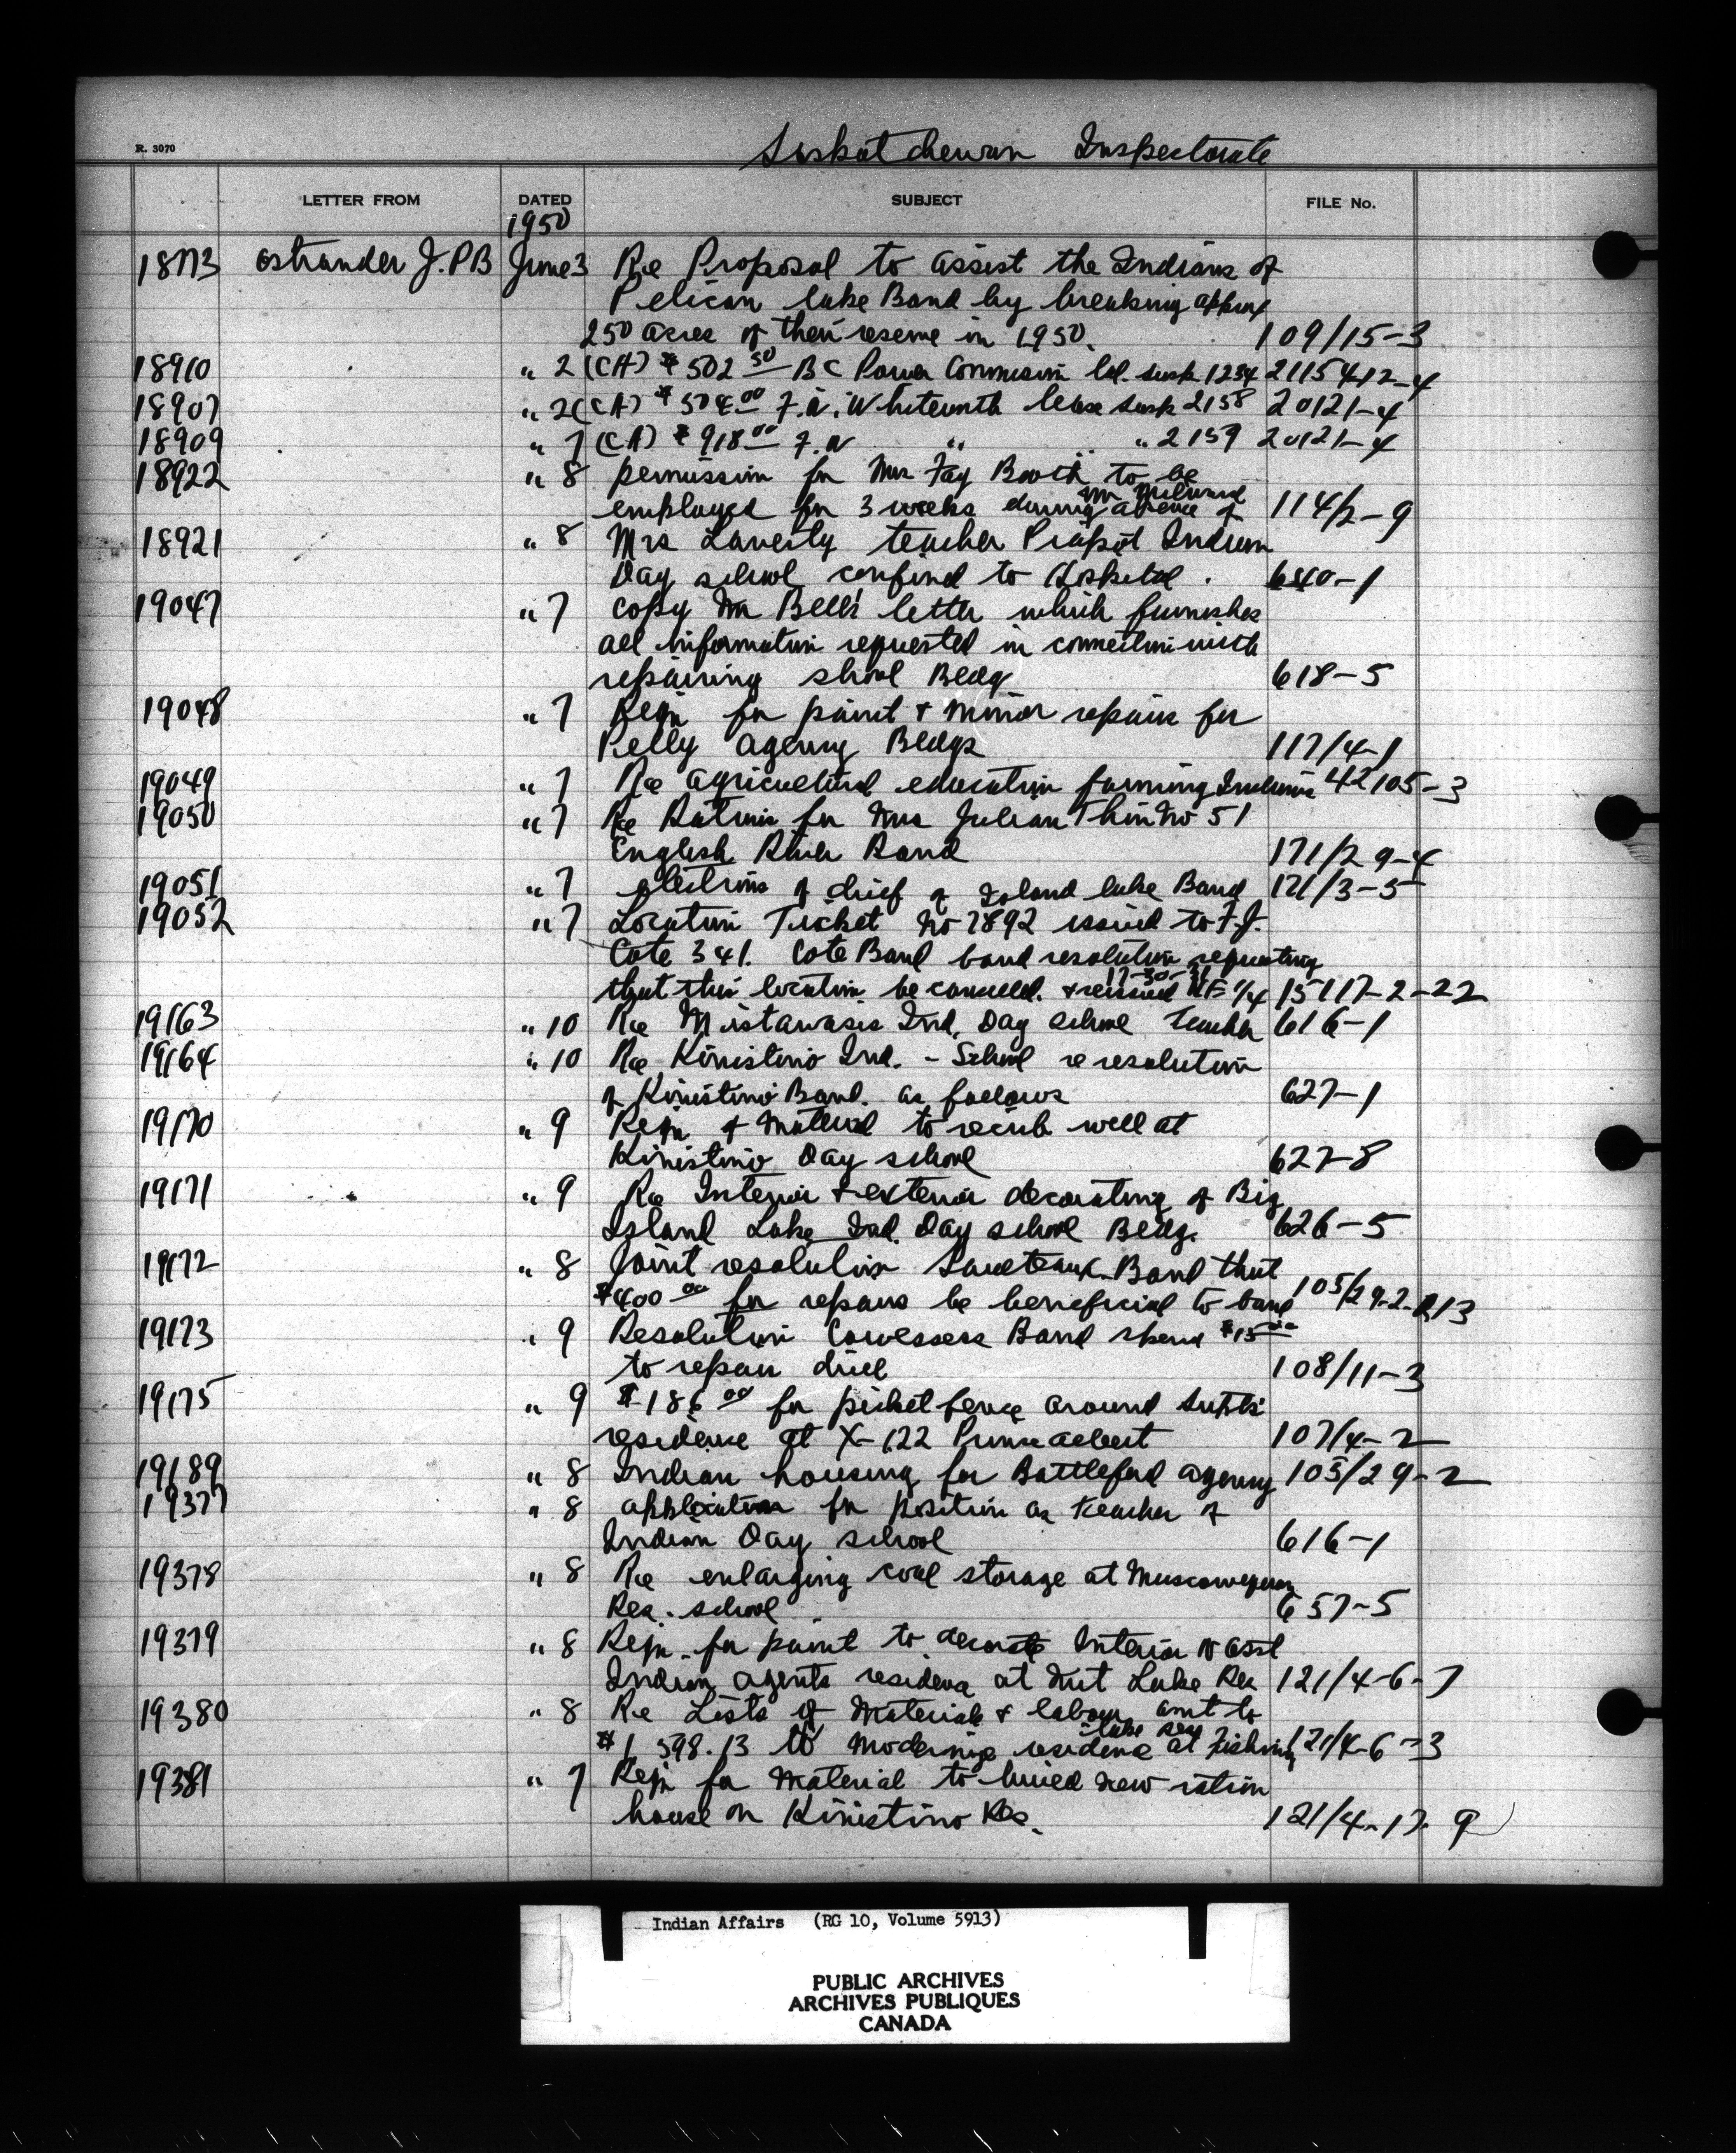 R. 3070
Saskatchewan Inspectorate
LETTER FROM DATED SUBJECT FILE No.
1950
18773 Ostrander J.PB June 3 Re Proposal to assist the Indians of
Pelican lake Band by breaking approx
250 acres of their reserve in 1950. 109/15-3
18910 " 2 (CA) $502 50 BC Power Commission Col. Sask 1234 211541 2-4
18907 " 2 (CA) $504.00 F.A. Whitworth lease Sask 2158 20121-4
18909 " 7 (CA) $918 00 F.A " " 2159 20121-4
18922 " 8 permission for Mrs Fay Booth to be
Mr Milward
employed for 3 weeks during absence of 114/2-9
18921 " 8 Mrs Laverty teacher Piapot Indian
Day school confind to Hospital. 640-1
19047 " 7 copy Mr Bell's letter which furnishes
all information requested in connection with
repairing shool Bldg 618-5
19048 " 7 Reqn for paint & minor repairs for
Pelly agency Bldgs 117/4-1
19049 " 7 Re agricultural education farming Indians 42105-3
19050 " 7 Re Rations for Mrs Julian Thin No 51
English River Band 171/29-4
19051 " 7 elections of chief of Island lake Band 121/3-5
19052 " 7 Location Ticket No 2892 issued to F.J.
Cote 341. Cote Band band resolution requesting
17-30-31
that this location be cancelled. & reissued NE 1/4 15117-2-22
19163 " 10 Re Mistawasis Ind. Day school teacher 616-1
19164 " 10 Re Kinistino Ind. - School re resolution
of Kinistino Band. as follows 627-1
19170 " 9 Reqn of material to recrib well at
Kinistino Day school 627-8
19171 " 9 Re Interior & exterior decorating of Big
Island Lake Ind. Day school Bldg. 626-5
19172 " 8 Joint resolution Saulteaux Band that
$400 00 for repairs be beneficial to band 105/29-2-13
19173 " 9 Resolution Cowessess Band spend $15
to repair drill 108/11-3
19175 " 9 $186 00 for picket fence around Supts'
residence at X-122 Prince albert 107/4-2
19189 " 8 Indian housing for Battleford agency 105/29-2
19377 " 8 application for position as teacher of
Indian Day school 616-1
19378 " 8 Re enlarging coal storage at Muscowequan
Res. school 657-5
19379 " 8 Reqn. for paint to decorate Interior of asst
Indian agents residence at Nut Lake Res 121/4-6-7
19380 " 8 Re Lists of Materials & labour amt to
lake res
$1 598.13 to modernize residence at Fishing 121/4-6-3
19381 " 7 Reqn for Material to build new ration
house on Kinistino Res. 121/4-17-9
Indian Affairs (RG 10, Volume 5913)
PUBLIC ARCHIVES
ARCHIVES PUBLIQUES
CANADA